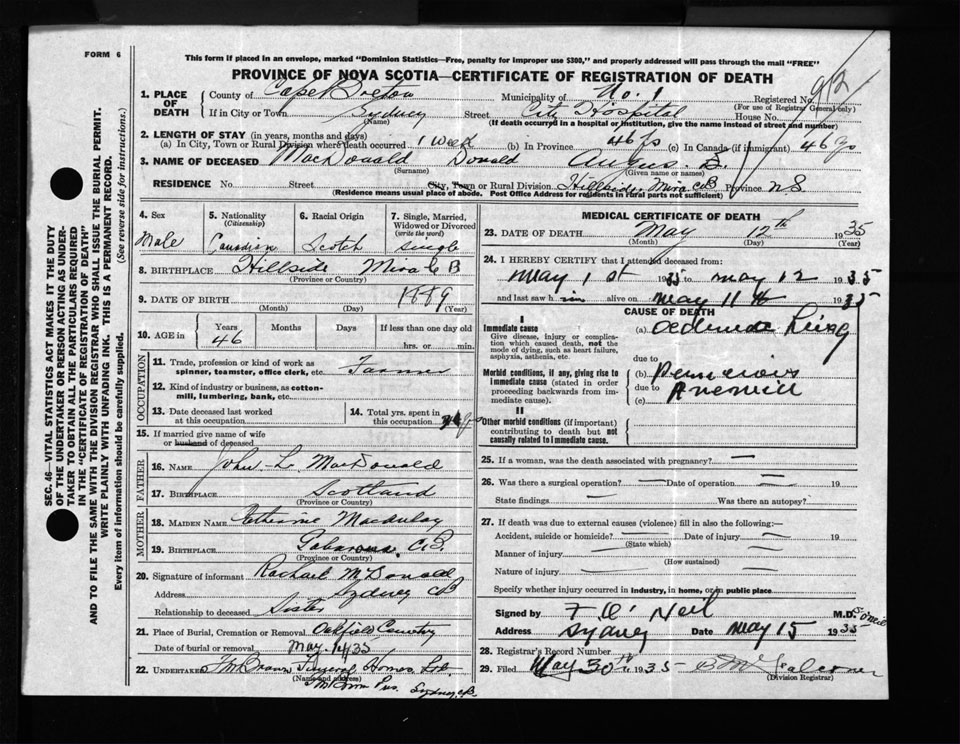 FORM 6
This form if placed in an envelope, marked "Dominion Statistics—Free, penalty for improper use $300," and properly addressed will pass through the mail "FREE"
PROVINCE OF NOVA SCOTIA—CERTIFICATE OF REGISTRATION OF DEATH
SEC. 46—VITAL STATISTICS ACT MAKES IT THE DUTY
OF THE UNDERTAKER OR PERSON ACTING AS UNDER-
TAKER TO OBTAIN ALL THE PARTICULARS REQUIRED
IN THE "CERTIFICATE OF REGISTRATION OF DEATH"
AND TO FILE THE SAME WITH THE DIVISION REGISTRAR WHO SHALL ISSUE THE BURIAL PERMIT.
WRITE PLAINLY WITH UNFADING INK. THIS IS A PERMANENT RECORD.
Every item of information should be carefully supplied. (See reverse side for instructions.)
1. PLACE OF DEATH County of Cape Breton Municipality of No. 1 Registered No. 912
(For use of Registrar General only)
If in City or Town Sydney Street City Hospital House No.
(Name) (If death occurred in a hospital or institution, give the name instead of street and number)
2. LENGTH OF STAY (in years, months and days)
(a) In City, Town or Rural Division where death occurred 1 week (b) In Province 46 yrs (c) In Canada (if immigrant) 46 yrs
3. NAME OF DECEASED MacDonald Donald Angus
(Surname) (Given name or names)
RESIDENCE No. Street City, Town or Rural Division Hillside Mira CB Province N.S.
(Residence means usual place of abode. Post Office Address for residents in rural parts not sufficient)
4. Sex Male
5. Nationality (Citizenship) Canadian
6. Racial Origin Scotch
7. Single, Married, Widowed or Divorced (write the word) Single
8. BIRTHPLACE Hillside Mira C B
(Province or Country)
9. DATE OF BIRTH 1889
(Month) (Day) (Year)
10. AGE in Years 46 Months Days If less than one day old
hrs. or min.
OCCUPATION
11. Trade, profession or kind of work as spinner, teamster, office clerk, etc. Farmer
12. Kind of industry or business, as cotton-mill, lumbering, bank, etc.
13. Date deceased last worked at this occupation
14. Total yrs. spent in this occupation
15. If married give name of wife or husband of deceased
FATHER
16. Name John L. MacDonald
17. Birthplace Scotland
(Province or Country)
MOTHER
18. Maiden Name Catherine MacAulay
19. Birthplace Gabarouse, C.B.
(Province or Country)
20. Signature of informant Rachael McDonald
Address Sydney CB
Relationship to deceased Sister
21. Place of Burial, Cremation or Removal Oakfield Cemetery
Date of burial or removal May 14/35
22. Undertaker Funeral Homes Ltd.
(Name and address)
Sydney, CB.
MEDICAL CERTIFICATE OF DEATH
23. DATE OF DEATH May 12th 1935
(Month) (Day) (Year)
24. I HEREBY CERTIFY that I attended deceased from:
May 1st 1935 to May 12 1935
and last saw him alive on May 11th 1935
CAUSE OF DEATH
I
Immediate cause
Give disease, injury or complication which caused death, not the mode of dying, such as heart failure, asphyxia, asthenia, etc.
(a) Oedema Lung
due to
Morbid conditions, if any, giving rise to immediate cause (stated in order proceeding backwards from immediate cause).
(b) Pernicious
due to Anemia
(c)
II
Other morbid conditions (if important) contributing to death but not causally related to immediate cause.
25. If a woman, was the death associated with pregnancy? —
26. Was there a surgical operation? — Date of operation — 19
State findings — Was there an autopsy?
27. If death was due to external causes (violence) fill in also the following:—
Accident, suicide or homicide? — Date of injury — 19
(State which)
Manner of injury —
(How sustained)
Nature of injury —
Specify whether injury occurred in industry, in home, or in public place
Signed by F O'Neil M.D.
Address Sydney Date May 15 1935
28. Registrar's Record Number
29. Filed May 30th 1935
(Division Registrar)